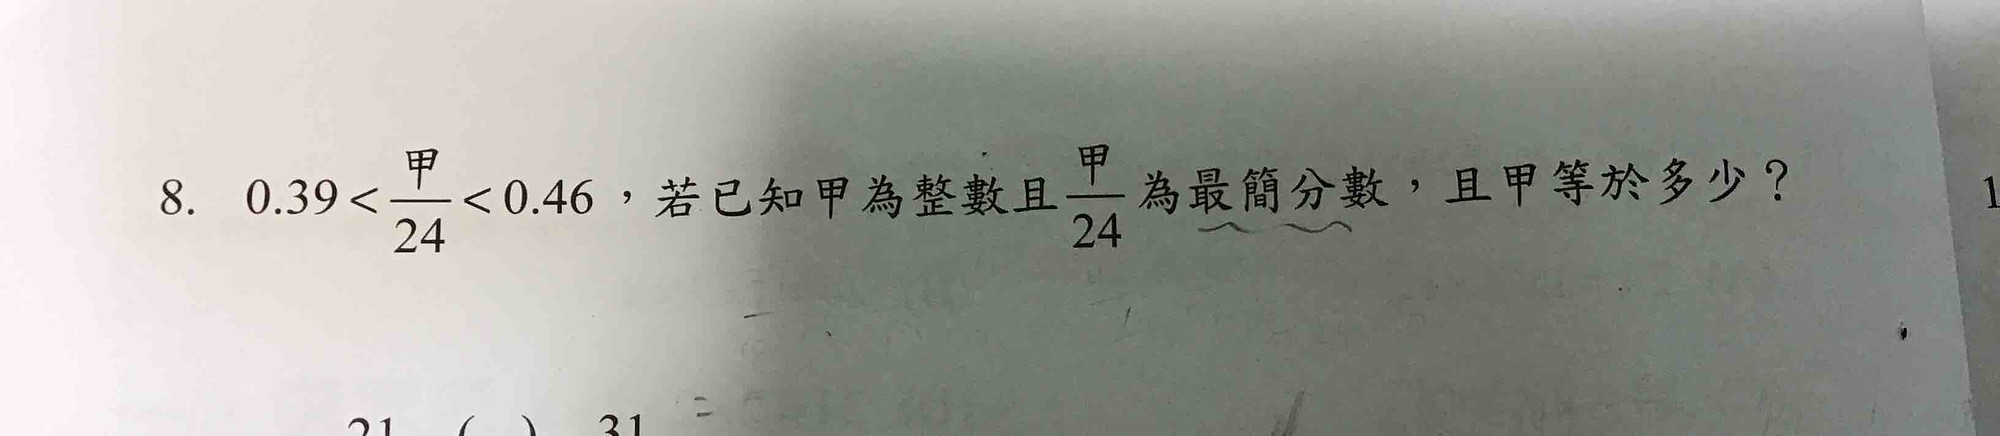 8. 0.39 < 甲/24 < 0.46，若已知甲為整數且甲/24為最簡分數，且甲等於多少？
21 ( ) 31
1